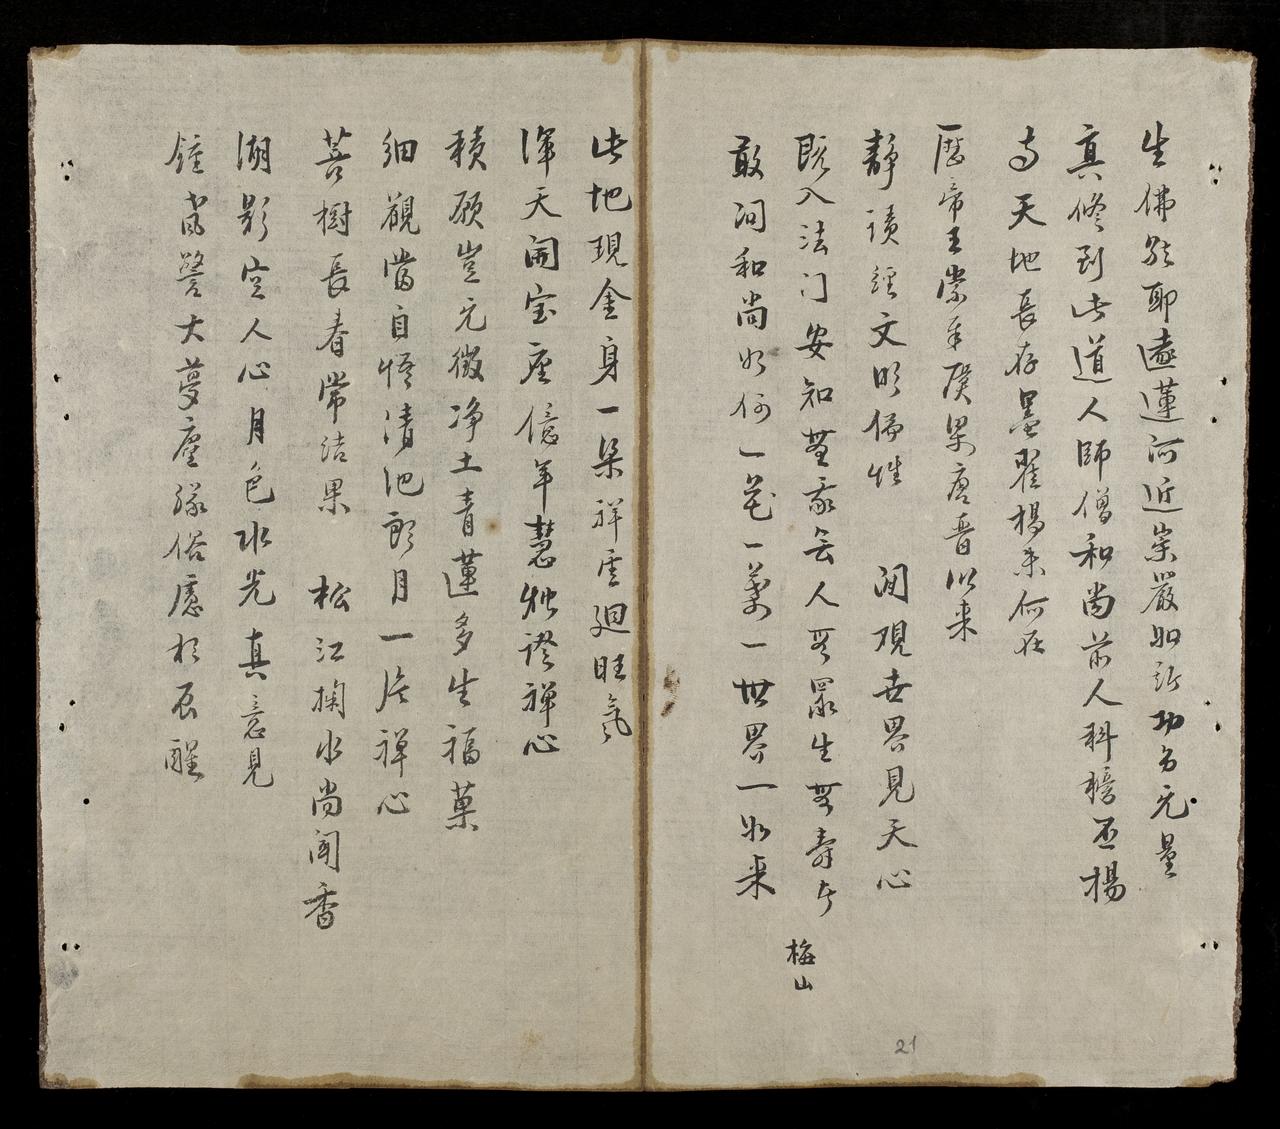 生佛能耶遠蓮河近崇嚴如許功多无量
真修到此道人師僧和尚前人科榜丕楊
与天地長存墨翟楊朱何在
歷帝王崇奉廣梁唐晋以来
靜讀經文明佛性 閒观世界見天心
既入法门安知無我無人無眾生無壽者 梅山
敢问和尚如何一花一葉一世界一如来
此地現金身一朵祥雲廻旺氣
渾天開宝座億年慧炬證禅心
積願豈无徵净土青蓮多生福菓
細觀當自悟清池朗月一片禅心
菩樹長春常结果 松江掬水尚闻香
湖影空人心月色水光真意見
鐘声警大夢塵緣俗慮於辰醒
21